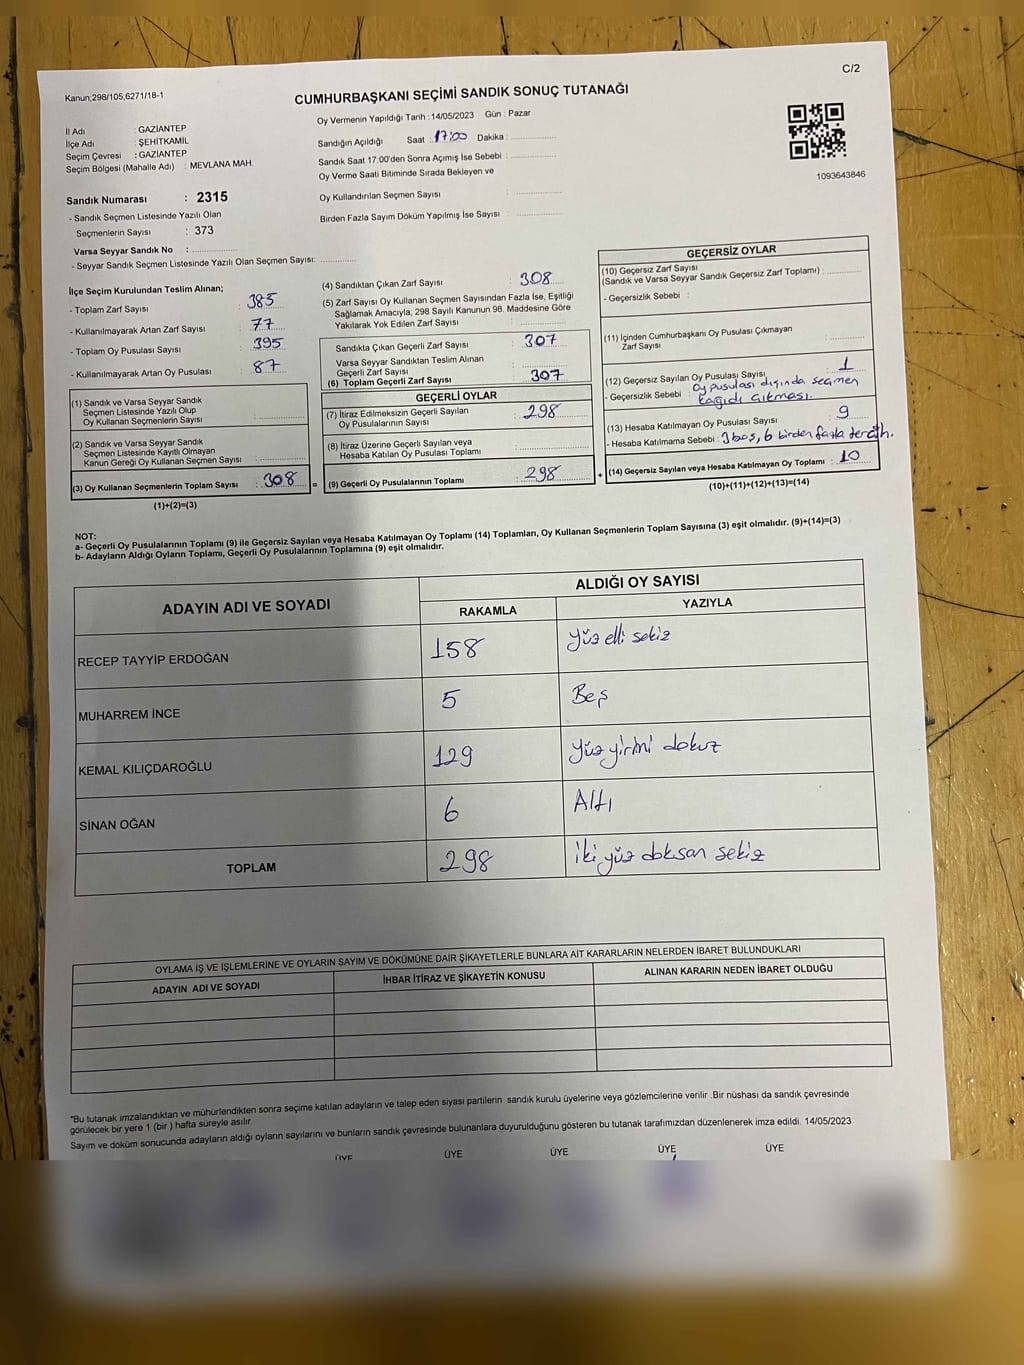 C/2
Kanun;298/105,6271/18-1
CUMHURBAŞKANI SEÇİMİ SANDIK SONUÇ TUTANAĞI
Oy Vermenin Yapıldığı Tarih :14/05/2023 Gün : Pazar
İl Adı : GAZİANTEP
İlçe Adı : ŞEHİTKAMİL
Seçim Çevresi : GAZİANTEP
Seçim Bölgesi (Mahalle Adı) : MEVLANA MAH.
Sandığın Açıldığı Saat : 17:00 Dakika :
Sandık Saat 17:00'den Sonra Açımış İse Sebebi :
Oy Verme Saati Bitiminde Sırada Bekleyen ve
Oy Kullandırılan Seçmen Sayısı :
Birden Fazla Sayım Döküm Yapılmış İse Sayısı :
1093643846
Sandık Numarası : 2315
- Sandık Seçmen Listesinde Yazılı Olan
Seçmenlerin Sayısı : 373
Varsa Seyyar Sandık No :
- Seyyar Sandık Seçmen Listesinde Yazılı Olan Seçmen Sayısı:
İlçe Seçim Kurulundan Teslim Alınan;
- Toplam Zarf Sayısı : 385
- Kullanılmayarak Artan Zarf Sayısı : 77
- Toplam Oy Pusulası Sayısı : 395
- Kullanılmayarak Artan Oy Pusulası : 87
(1) Sandık ve Varsa Seyyar Sandık
Seçmen Listesinde Yazılı Olup
Oy Kullanan Seçmenlerin Sayısı :
(2) Sandık ve Varsa Seyyar Sandık
Seçmen Listesinde Kayıtlı Olmayan
Kanun Gereği Oy Kullanan Seçmen Sayısı :
(3) Oy Kullanan Seçmenlerin Toplam Sayısı : 308 =
(1)+(2)=(3)
(4) Sandıktan Çıkan Zarf Sayısı : 308
(5) Zarf Sayısı Oy Kullanan Seçmen Sayısından Fazla İse, Eşitliği
Sağlamak Amacıyla; 298 Sayılı Kanunun 98. Maddesine Göre
Yakılarak Yok Edilen Zarf Sayısı :
Sandıkta Çıkan Geçerli Zarf Sayısı : 307
Varsa Seyyar Sandıktan Teslim Alınan
Geçerli Zarf Sayısı :
(6) Toplam Geçerli Zarf Sayısı : 307
GEÇERLİ OYLAR
(7) İtiraz Edilmeksizin Geçerli Sayılan
Oy Pusulasının Sayısı : 298
(8) İtiraz Üzerine Geçerli Sayılan veya
Hesaba Katılan Oy Pusulası Toplamı :
(9) Geçerli Oy Pusulalarının Toplamı : 298 +
GEÇERSİZ OYLAR
(10) Geçersiz Zarf Sayısı
(Sandık ve Varsa Seyyar Sandık Geçersiz Zarf Toplamı) :
- Geçersizlik Sebebi :
(11) İçinden Cumhurbaşkanı Oy Pusulası Çıkmayan
Zarf Sayısı :
(12) Geçersiz Sayılan Oy Pusulası Sayısı : 1
- Geçersizlik Sebebi : oy pusulası dışında seçmen
kağıdı çıkması.
(13) Hesaba Katılmayan Oy Pusulası Sayısı : 9
- Hesaba Katılmama Sebebi : 3 boş, 6 birden fazla tercih.
(14) Geçersiz Sayılan veya Hesaba Katılmayan Oy Toplamı : 10
(10)+(11)+(12)+(13)=(14)
NOT:
a- Geçerli Oy Pusulalarının Toplamı (9) ile Geçersiz Sayılan veya Hesaba Katılmayan Oy Toplamı (14) Toplamları, Oy Kullanan Seçmenlerin Toplam Sayısına (3) eşit olmalıdır. (9)+(14)=(3)
b- Adayların Aldığı Oyların Toplamı, Geçerli Oy Pusulalarının Toplamına (9) eşit olmalıdır.
ADAYIN ADI VE SOYADI
ALDIĞI OY SAYISI
RAKAMLA YAZIYLA
RECEP TAYYİP ERDOĞAN 158 Yüz elli sekiz
MUHARREM İNCE 5 Beş
KEMAL KILIÇDAROĞLU 129 Yüz yirmi dokuz
SİNAN OĞAN 6 Altı
TOPLAM 298 İki yüz doksan sekiz
OYLAMA İŞ VE İŞLEMLERİNE VE OYLARIN SAYIM VE DÖKÜMÜNE DAİR ŞİKAYETLERLE BUNLARA AİT KARARLARIN NELERDEN İBARET BULUNDUKLARI
ADAYIN ADI VE SOYADI İHBAR İTİRAZ VE ŞİKAYETİN KONUSU ALINAN KARARIN NEDEN İBARET OLDUĞU
*Bu tutanak imzalandıktan ve mühürlendikten sonra seçime katılan adayların ve talep eden siyasi partilerin sandık kurulu üyelerine veya gözlemcilerine verilir .Bir nüshası da sandık çevresinde
görülecek bir yere 1 (bir ) hafta süreyle asılır.
Sayım ve döküm sonucunda adayların aldığı oyların sayılarını ve bunların sandık çevresinde bulunanlara duyurulduğunu gösteren bu tutanak tarafımızdan düzenlenerek imza edildi. 14/05/2023
ÜYE ÜYE ÜYE ÜYE ÜYE